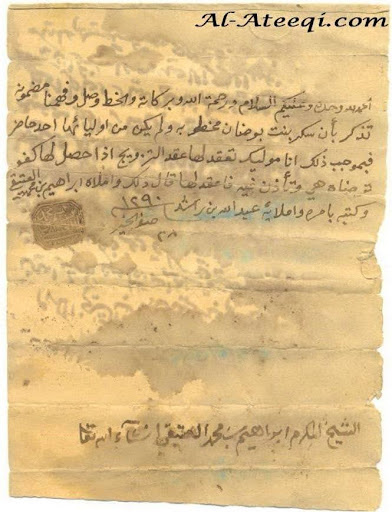 Al-Ateeqi.com
الحمد لله وحده وعليكم السلام ورحمة الله وبركاته والخط وصل وفهمنا مضمونه
تذكر بأن سكر بنت بوضنان مخطوبه ولم يكن من اوليائها احد حاضر
فبموجب ذلك انا موليك تعقد لها عقد التزويج اذا حصل لها كفو
ترضاه هي وتأذن فيه فاعقد لها قال ذلك واملاه ابراهيم بن محمد العتيقي
وكتبه بامره واملائه عبد الله بن راشد
١٢٩٠
صفر
٢٨
الشيخ المكرم ابراهيم بن محمد العتيقي ان شاء الله تعا